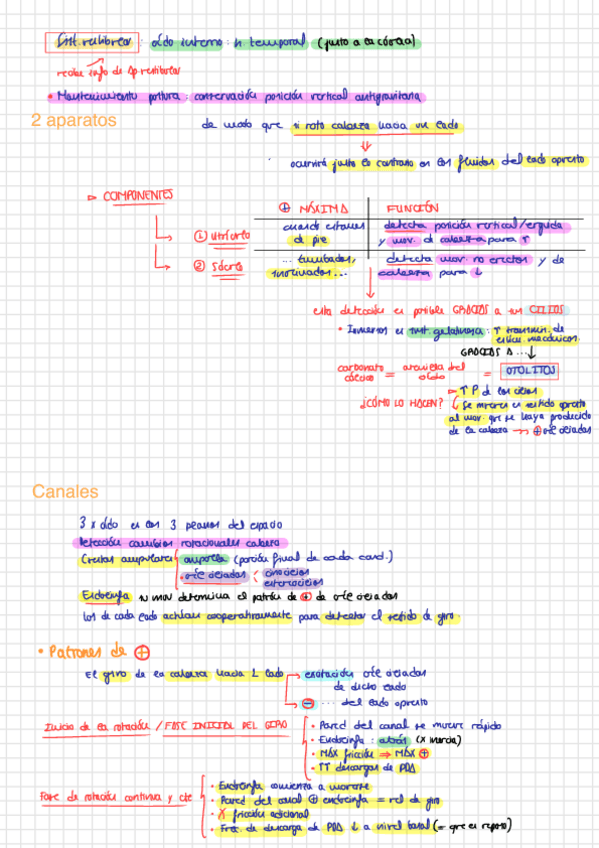 Sist. vestibular: oído interno: h temporal (junto a la cóclea)
recibe info de ap vestibular
• Mantenimiento postura: conservación posición vertical antigravitaria
2 aparatos
de modo que si roto cabeza hacia un lado
ocurrirá justo lo contrario en los fluidos del lado opuesto
▷ COMPONENTES
⊕ MÁXIMA FUNCIÓN
① Utrículo cuando estamos de pie detecta posición vertical/erguida y mov. de cabeza para ↑
② Sáculo ... tumbados, inclinados... detecta mov. no erectos y de cabeza para ↓
esta detección es posible GRACIAS a sus CILIOS
• Inmersos en sust. gelatinosa: ↑ transmisión de estím. mecánicos.
GRACIAS A ...
carbonato cálcico = arenilla del oído = OTOLITOS
¿CÓMO LO HACEN? ▷ ↑ P de los cilios
Se mueven en sentido opuesto
al mov. que se haya producido
de la cabeza → ⊕ cél ciliadas
Canales
3 x oído en los 3 planos del espacio
Detección cambios rotacionales cabeza
Crestas ampulares ampolla (porción final de cada cond.)
• cél ciliadas cinocilios
estereocilios
Endolinfa su mov determina el patrón de ⊕ de cél ciliadas
Los de cada lado actúan cooperativamente para detectar el sentido de giro.
• Patrones de ⊕
El giro de la cabeza hacia 1 lado → excitación cél ciliadas
de dicho lado
⊖ ... del lado opuesto
Inicio de la rotación / FASE INICIAL DEL GIRO
• Pared del canal se mueve rápido
• Endolinfa: atrás (x inercia)
• MÁX fricción ⇒ MÁX ⊕
• ↑↑ descargas de PDA
Fase de rotación continua y cte
• Endolinfa comienza a moverse
• Pared del canal ⊕ endolinfa = vel de giro
• X fricción adicional
• Frec de descarga de PDA ↓ a nivel basal (= que en reposo)